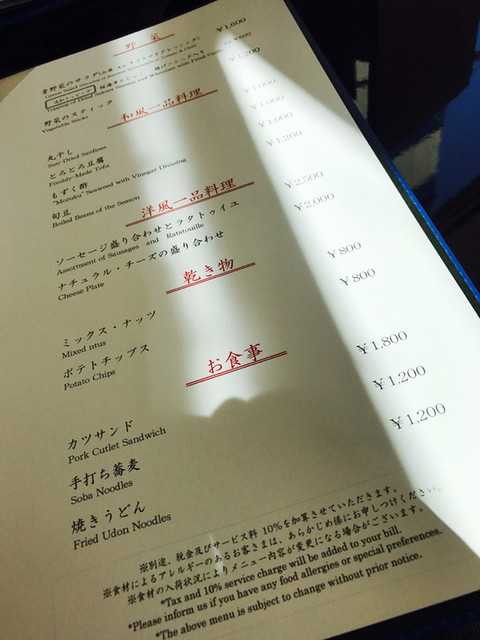 野 菜
青野菜のサラダ
￥1,600
野菜のスティック
Vegetable Sticks
￥1,200
和風一品料理
丸干し
Semi Dried Sardines
￥1,000
とろとろ豆腐
Freshly-Made Tofu
￥1,000
もずく酢
"Mozuku" Seaweed with Vinegar Dressing
￥1,000
旬豆
Boiled Beans of the Season
￥1,200
洋風一品料理
ソーセージ盛り合わせとラタトゥイユ
Assortment of Sausages and Ratatouille
￥2,500
ナチュラル・チーズの盛り合わせ
Cheese Plate
￥2,000
乾き物
ミックス・ナッツ
Mixed ntus
￥800
ポテトチップス
Potato Chips
￥800
お食事
カツサンド
Pork Cutlet Sandwich
￥1,800
手打ち蕎麦
Soba Noodles
￥1,200
焼きうどん
Fried Udon Noodles
￥1,200
※別途、税金及びサービス料 10%を加算させていただきます。
※食材によるアレルギーのあるお客さまは、あらかじめ係にお申しつけください。
※食材の入荷状況によりメニュー内容が変更になる場合がございます。
*Tax and 10% service charge will be added to your bill.
*Please inform us if you have any food allergies or special preferences.
*The above menu is subject to change without prior notice.